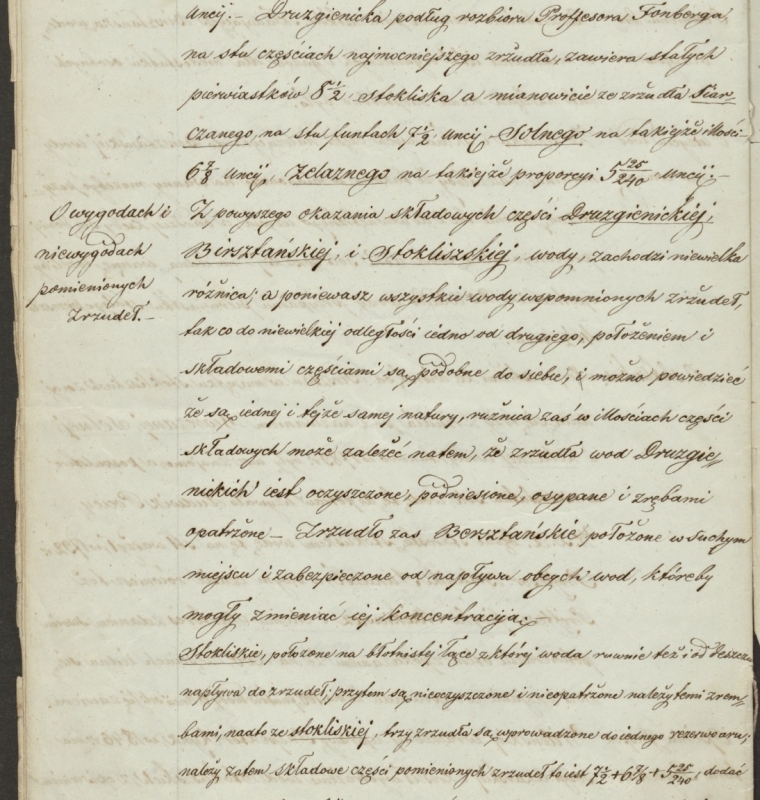 Uncij. – Druzgienicka podług rozbioru Proffesora Fonberga
na stu częściach najmocniejszego zrzudła, zawiera stałych
pierwiastków 8 1/2 Stokliska a mianowicie ze zrzudła Siar=
czanego, na stu funtach 7 1/2 uncij – Solnego na takiejże illości
6 7/8 Uncij, Żelaznego na takiejże proporcyi 5 25/240 Uncij. –
O wygodach i
niewygodach
pomienionych
Zrzudeł. –
Z powyszego okazania składowych części Druzgienickiej,
Birsztańskiej, i Stokliszskiej, wody, zachodzi niewielka
różnica; a poniewasz wszystkie wody wspomnionych zrzudeł,
tak co do niewielkiej odległości iedno od drugiego, położeniem i
składowemi częściami są podobne do siebie, i możno powiedzieć
że są iednej i tejże samej natury, rużnica zaś w illościach części
składowych może zależéć natem, że zrzudła wod Druzgie=
nickich iest oczyszczone, podniesione, osypane i zrębami
opatrzone – Zrzudło zas Bersztańskie położone w suchym
miejscu i zabezpieczone od napływu obcych wod, któreby
mogły zmieniać iej koncentracija. –
Stokliskie, położone na błotnistej łące z której woda rownie też i od deszczu
napływa do zrzudeł; przytem są nieoczyszczone i nieopatrzone należytemi zrem=
bami, nadto ze stokliskiej, trzy zrzudła są wprowadzone do iednego rezerwoaru;
należy zatem składowe części pomienionych zrzudeł to iest 7 1/2 + 6 7/8 + 5 25/240, dodać